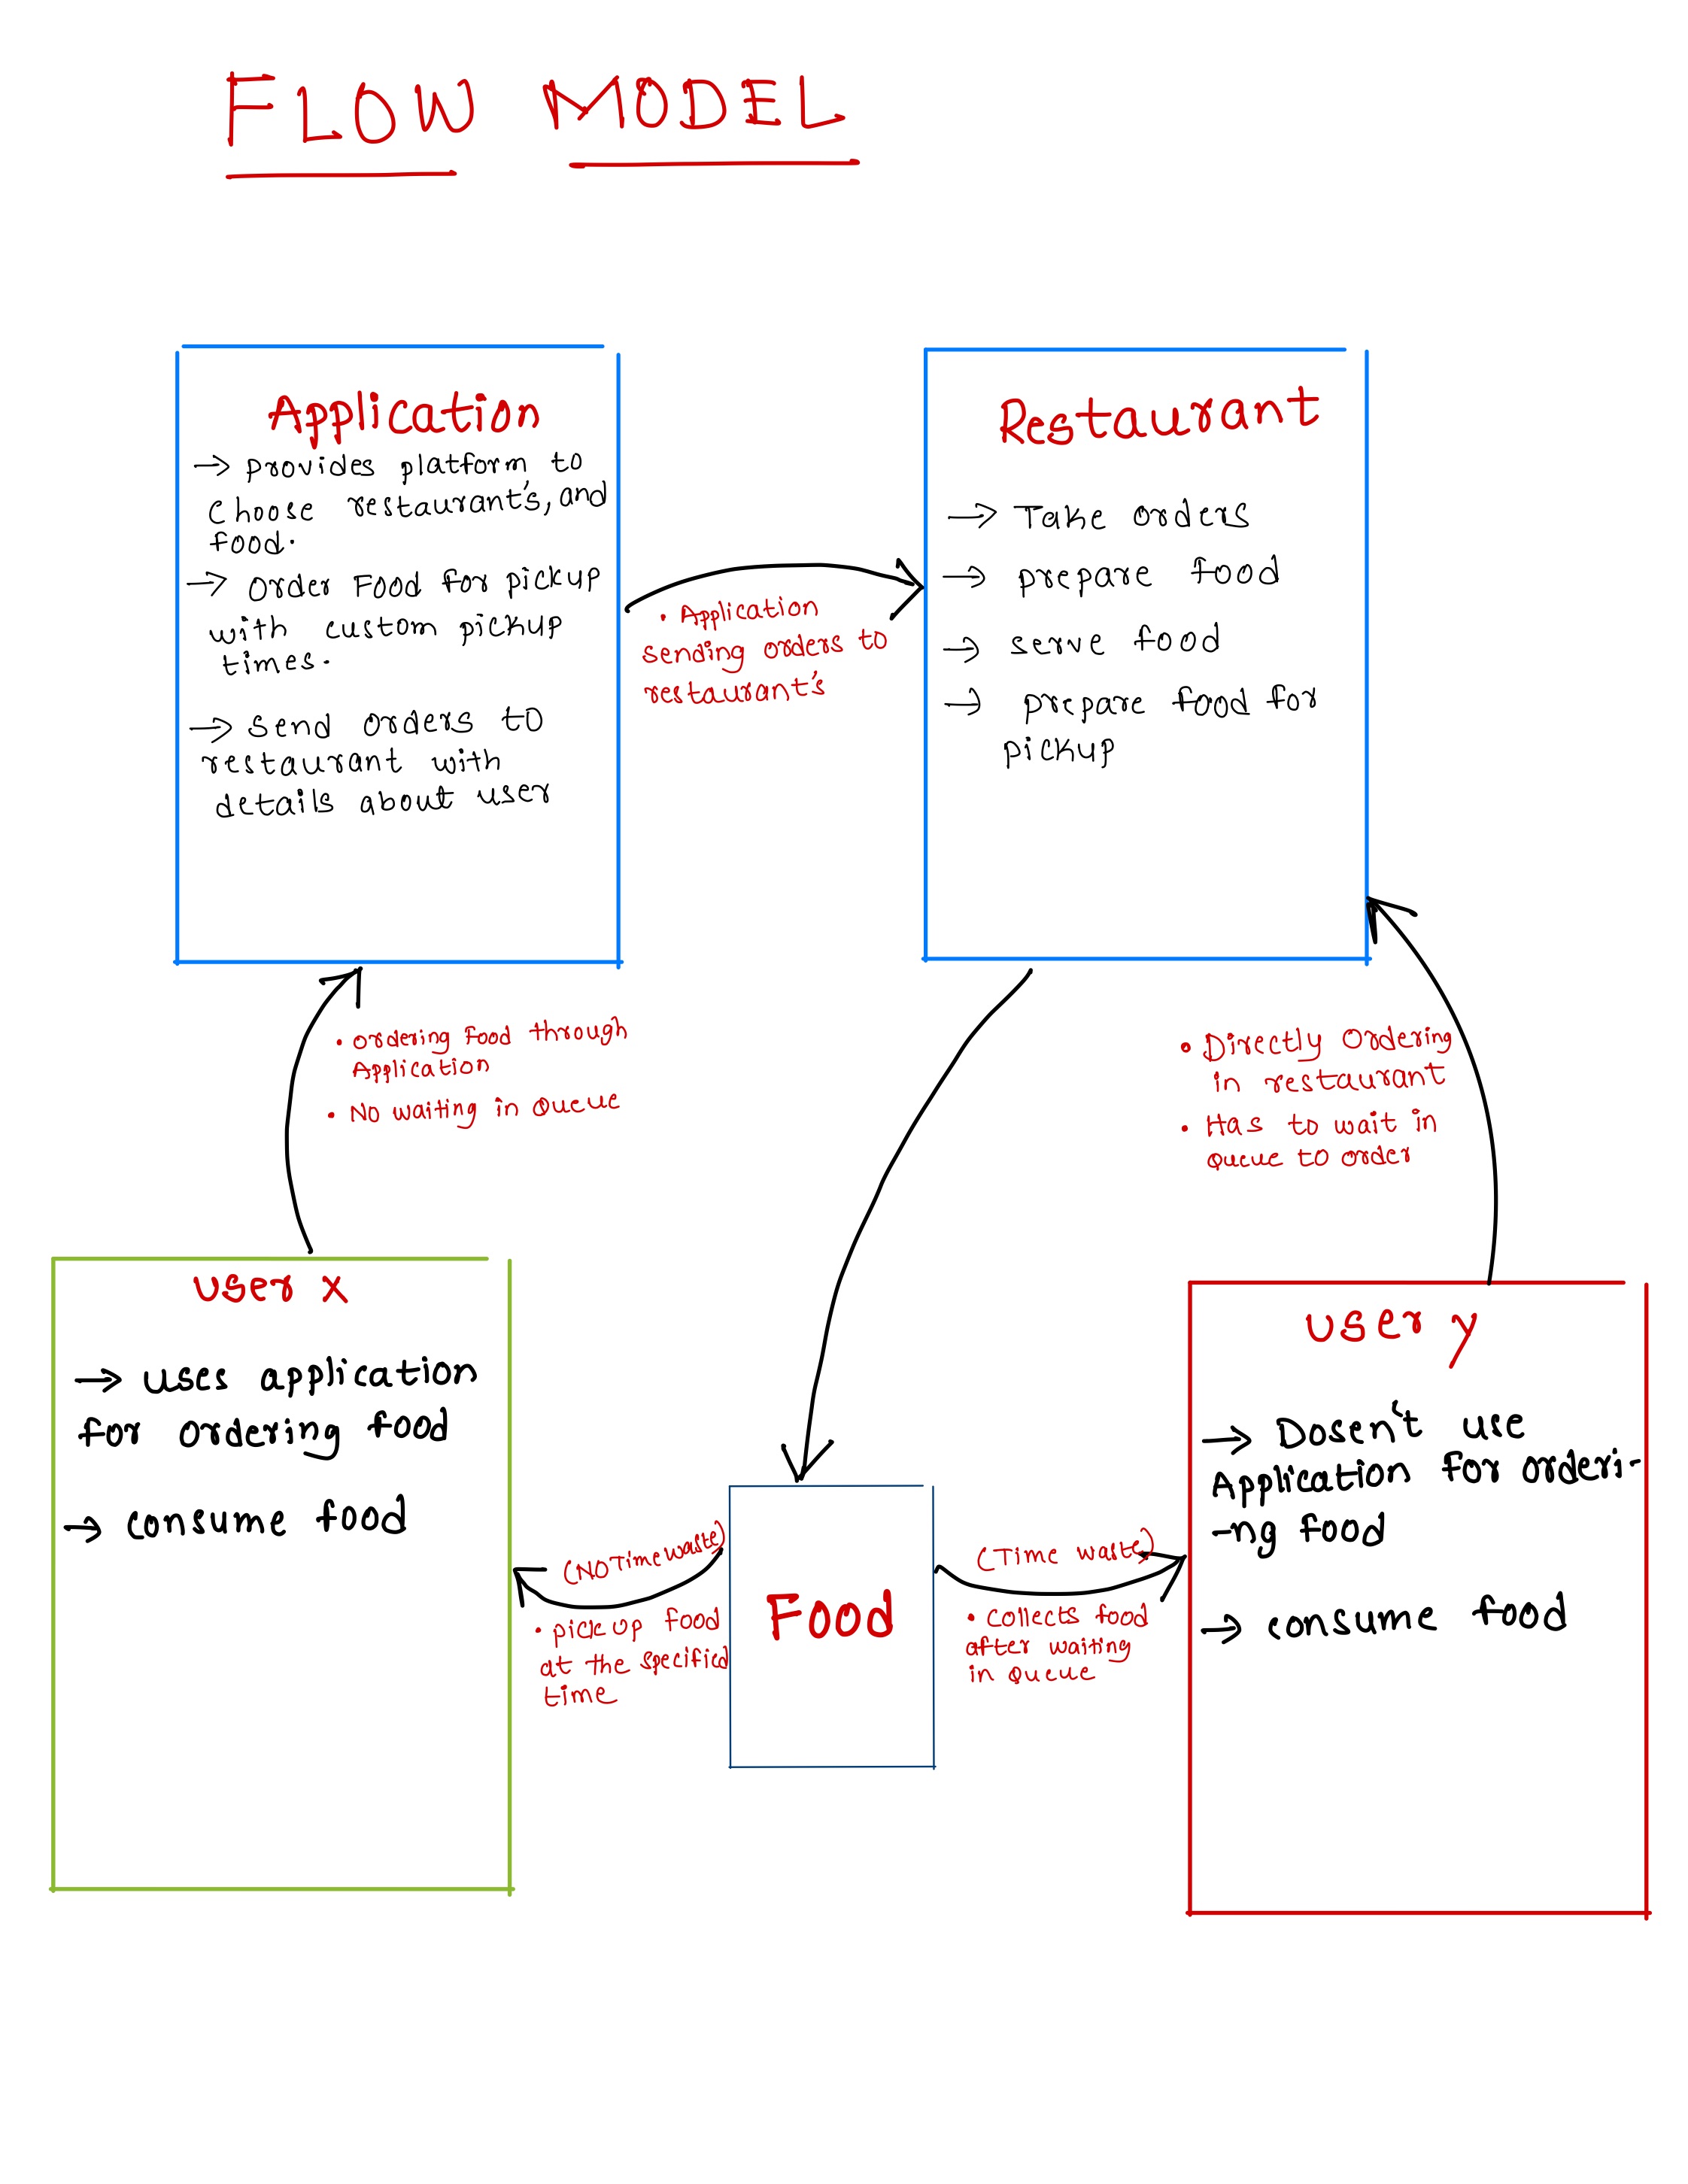 FLOW MODEL
Application
→ provides platform to
choose restaurant's, and
food.
→ Order Food for pickup
with custom pickup
times.
→ Send Orders to
restaurant with
details about user
• Application
sending orders to
restaurant's
Restaurant
→ Take orders
→ prepare food
→ serve food
→ prepare food for
pickup
• Ordering Food through
Application
• No waiting in Queue
• Directly Ordering
in restaurant
• Has to wait in
Queue to order
user x
→ uses application
for ordering food
→ consume food
(NO Time waste)
• pick up food
at the specified
time
Food
(Time waste)
• Collects food
after waiting
in Queue
user y
→ Dosen't use
Application for orderi-
-ng food
→ consume food